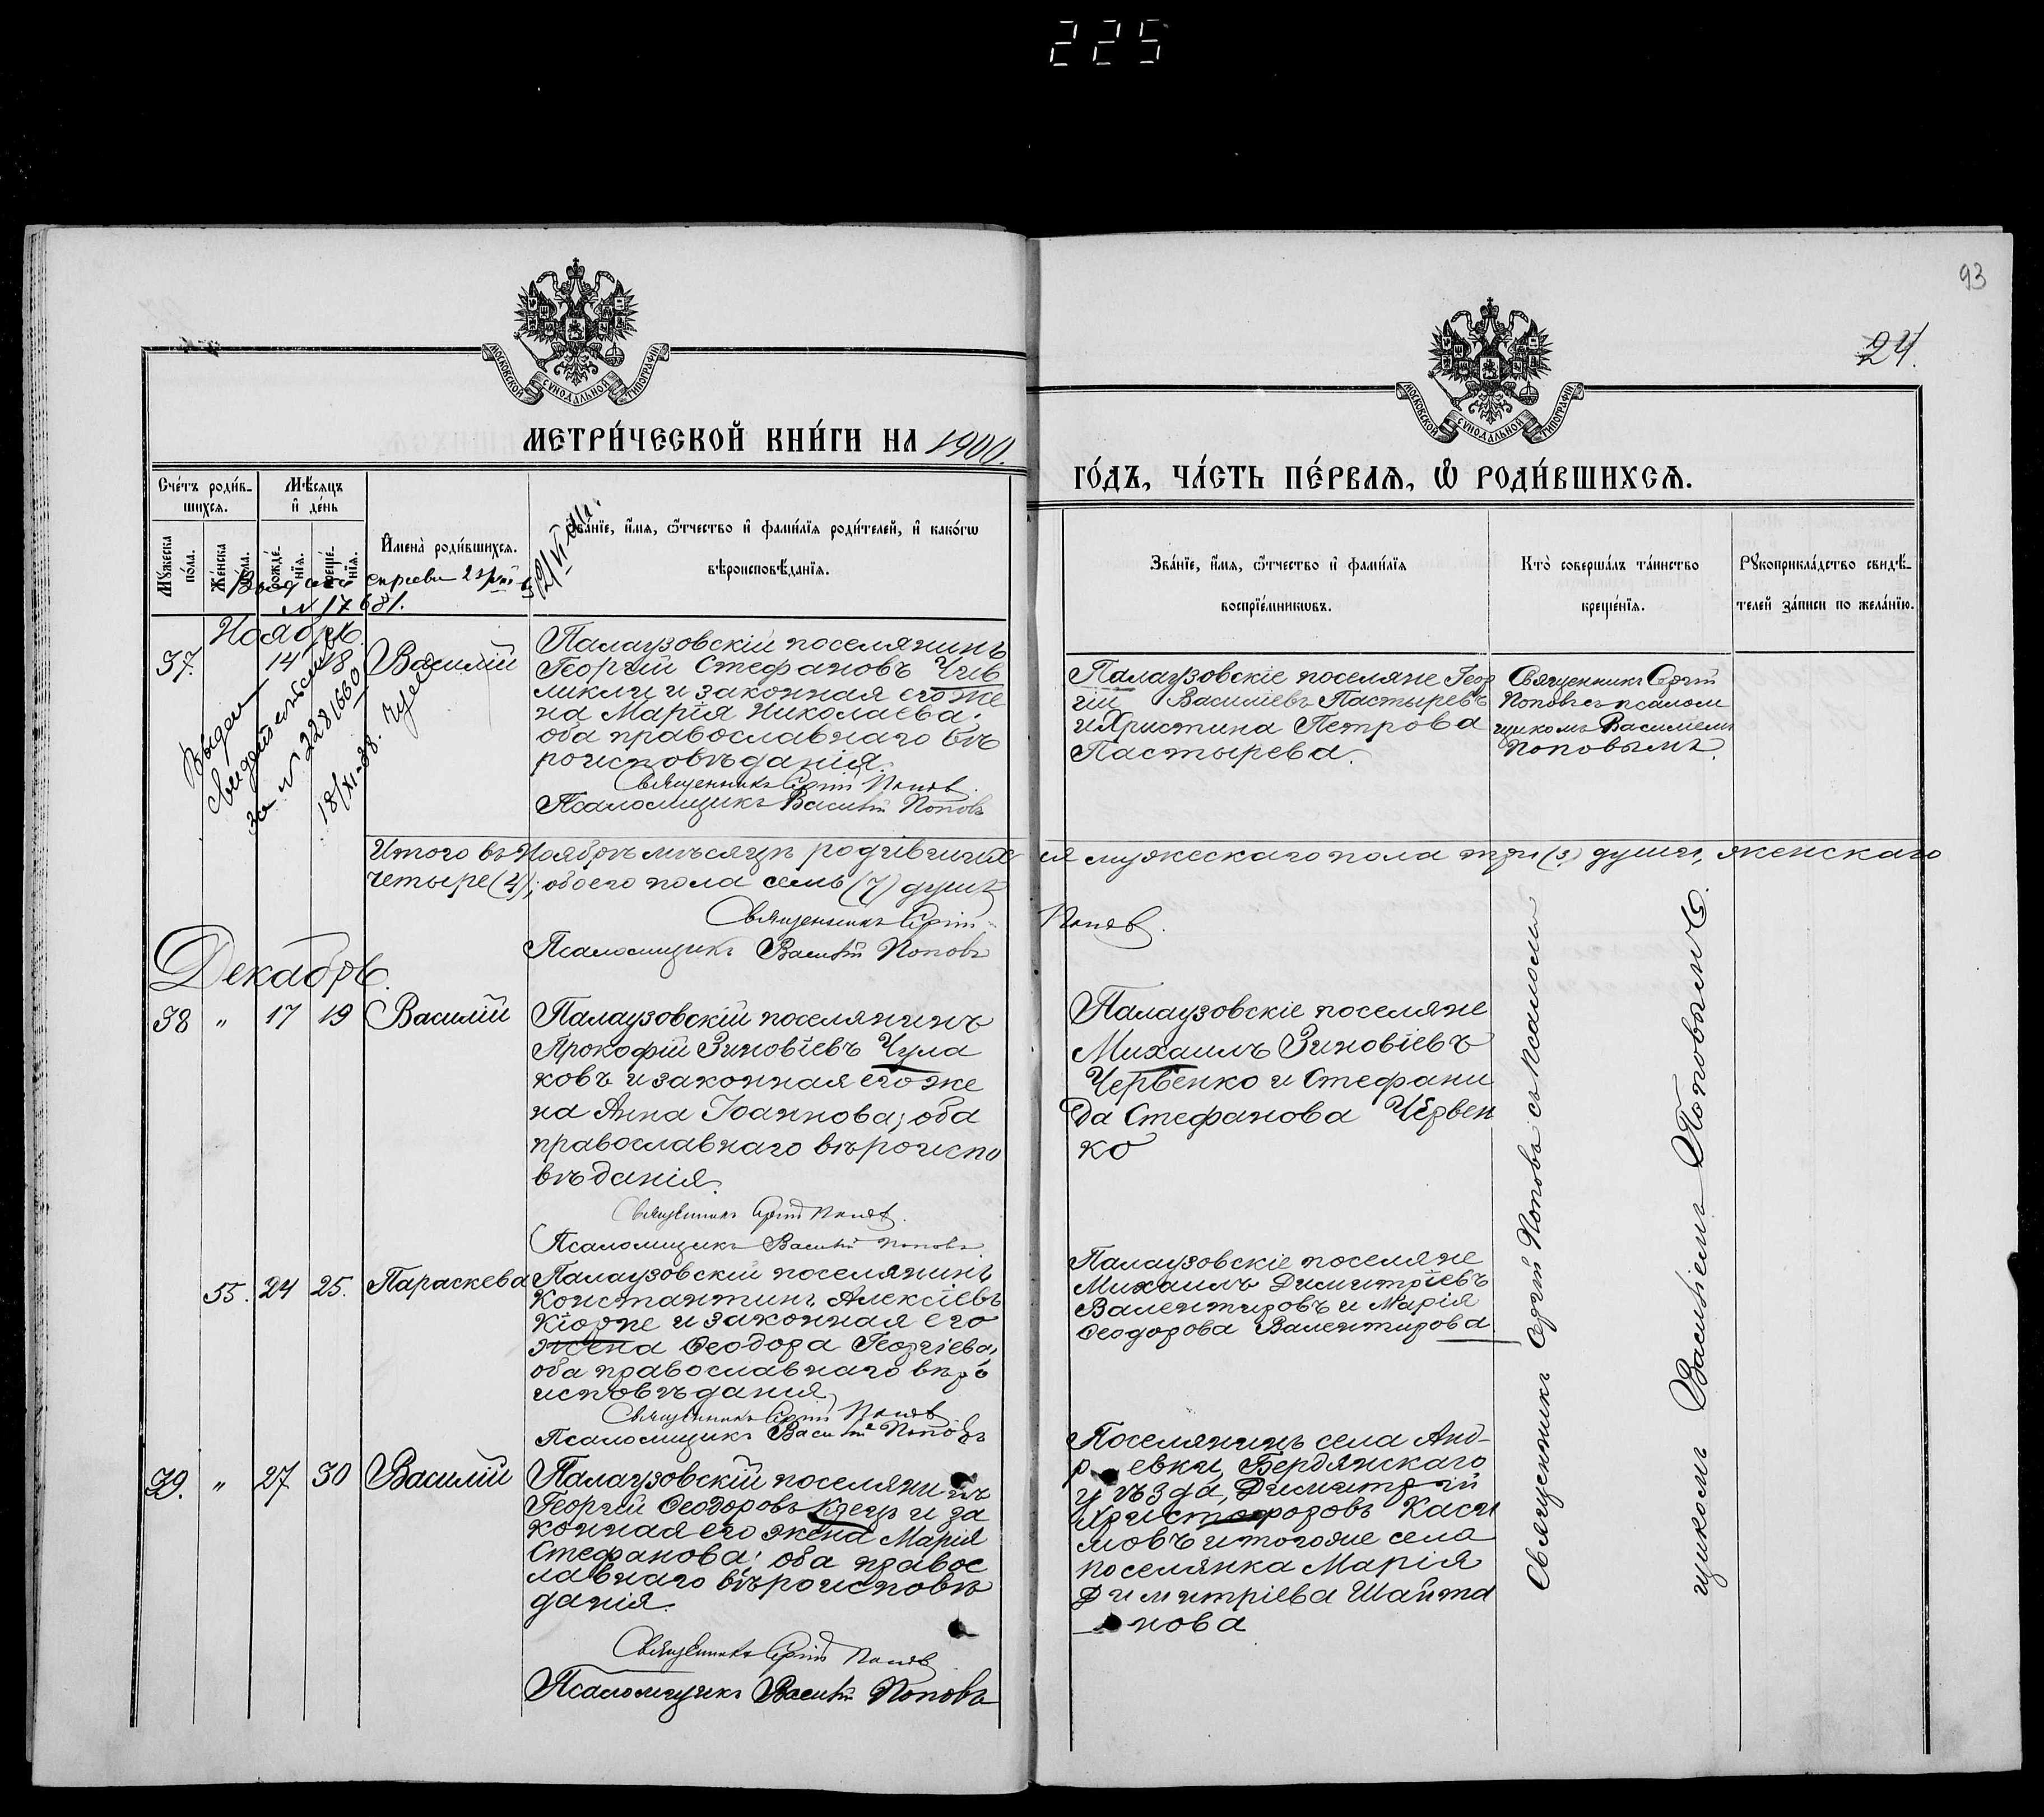 225
93
24.
МОСКОВСКОЙ СУНОДАЛЬНОЙ ТИПОГРАФІИ
МОСКОВСКОЙ СУНОДАЛЬНОЙ ТИПОГРАФІИ
МЕТРИ́ЧЕСКОЙ КНИ́ГИ НА 1900.
ГО́ДЪ, ЧА́СТЬ ПЕ́РВАЯ, Ѽ РОДИ́ВШИХСЯ.
Сче́тъ роди́в-
шихся.
Мꙋ́жеска
по́ла.
Же́нска
по́ла.
Мѣ́сяцъ
и҆ де́нь
рожде́-
нїя.
креще́-
нїя.
И҆мена̀ роди́вшихся.
Зва́нїе, и҆́мя, ѻ҆́тчество и҆ фами́лїя роди́телей, и҆ како́гѡ
вѣроисповѣ́данїя.
Зва́нїе, и҆́мя, ѻ҆́тчество и҆ фами́лїя
воспрїе́мникѡвъ.
Кто̀ соверша́лъ та́инство
креще́нїя.
Рꙋкоприкла́дство свидѣ́-
телей за́писи по жела́нїю.
N 17681.
Ноябрь
37.
14 18
Василій
Палаузовскій поселянинъ
Георгій Стефановъ Чив
ликли и законная его же
на Марія Николаева;
оба православнаго вѣ
роисповѣданія.
Священникъ Сергій Поповъ.
Псаломщикъ Василій Поповъ
Палаузовскіе поселяне Геор
гій Василіевъ Пастыревъ
и Христина Петрова
Пастырева.
Священникъ Сергій
Поповъ съ псалом
щикомъ Василіемъ
Поповымъ.
Выдан
свидетельство
за N 2281660
18/XI-38.
Итого въ Ноябрѣ мѣсяцѣ родившихся мужескаго пола три (3) души, женскаго
четыре (4); обоего пола семь (7) душъ
Священникъ Сергій Поповъ.
Псаломщикъ Василій Поповъ
Декабрь.
38 " 17 19 Василій
Палаузовскій поселянинъ
Прокофій Зиновіевъ Чула
ковъ и законная его же
на Анна Іоаннова; оба
православнаго вѣроиспо
вѣданія.
Священникъ Сергій Поповъ.
Псаломщикъ Василій Поповъ.
Палаузовскіе поселяне
Михаилъ Зиновіевъ
Червенко и Стефани
да Стефанова Червен
ко
55. 24 25. Параскева
Палаузовскій поселянинъ
Константинъ Алексіевъ
Кіорпе и законная его
жена Ѳеодора Георгіева,
оба православнаго вѣро
исповѣданія
Священникъ Сергій Поповъ
Псаломщикъ Василій Поповъ
Палаузовскіе поселяне
Михаилъ Димитріевъ
Валентировъ и Марія
Ѳеодорова Валентирова
39. " 27 30 Василій
Палаузовскій поселянинъ
Георгій Ѳеодоровъ и за
конная его жена Марія
Стефанова; оба правос
лавнаго вѣроисповѣ
данія.
Священникъ Сергій Поповъ
Псаломщикъ Василій Поповъ
Поселянинъ села Анд-
р евки, Бердянскаго
уѣзда, Димитрій
Христофоровъ Каси
мовъ и тогоже села
поселянка Марія
Димитріева Шайта
нова
Священникъ Сергій Поповъ съ псалом
щикомъ Василіемъ Поповымъ.